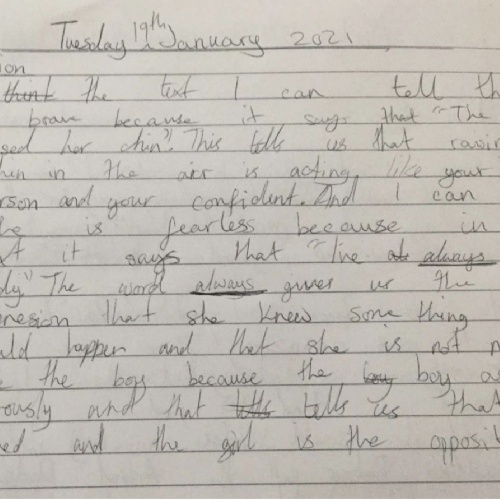 Tuesday 19th January 2021
ion
think the text I can tell th
brave because it says that "The
sed her chin". This tells us that raisin
hin in the air is acting like your
rson and your confident. And I can
he is fearless because in
it says that "I've always
dy" The word always gives us the
presion that she knew some thing
uld happen and that she is not n
the boy because the boy a
rously and that tells us that
ed and the girl is the opposit